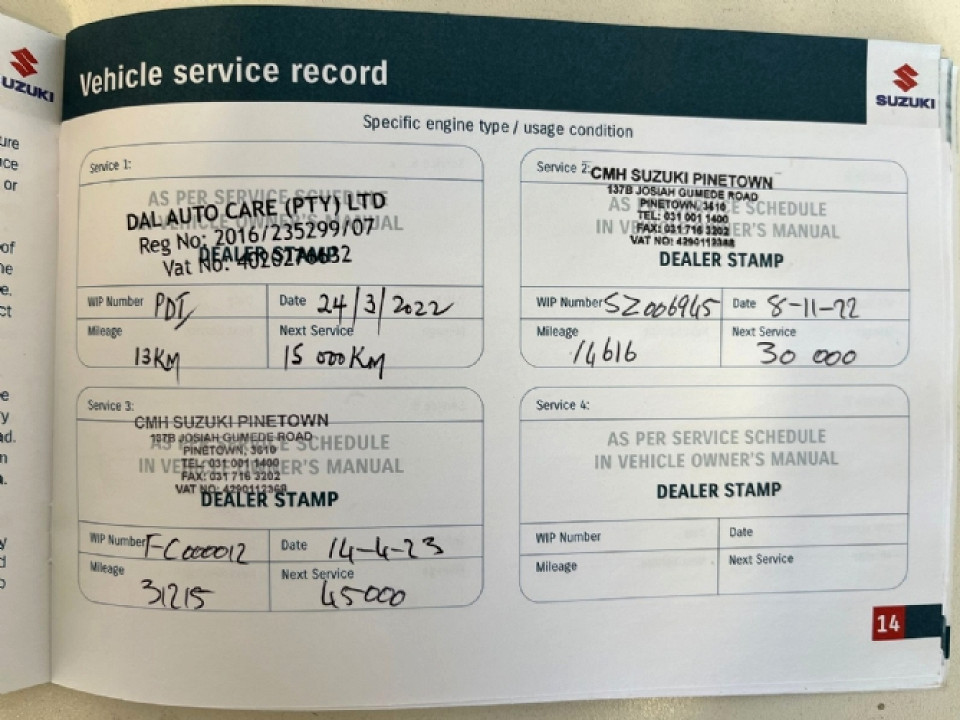 UZUKI
ure
ice
or
of
he
e.
ct
e
y
ad.
n
a.
y
d
o
Vehicle service record
SUZUKI
Specific engine type / usage condition
Service 1:
AS PER SERVICE SCHEDULE
IN VEHICLE OWNER'S MANUAL
DEALER STAMP
DAL AUTO CARE (PTY) LTD
Reg No: 2016/235299/07
Vat No:
WIP Number PDI
Date 24/3/2022
Mileage
13KM
Next Service
15 000KM
Service 2:
CMH SUZUKI PINETOWN
137B JOSIAH GUMEDE ROAD
PINETOWN, 3610
TEL: 031 001 1400
FAX: 031 716 3202
VAT NO: 4290112368
AS PER SERVICE SCHEDULE
IN VEHICLE OWNER'S MANUAL
DEALER STAMP
WIP Number SZ006945
Date 8-11-22
Mileage
14616
Next Service
30 000
Service 3:
CMH SUZUKI PINETOWN
137B JOSIAH GUMEDE ROAD
PINETOWN, 3610
TEL: 031 001 1400
FAX: 031 716 3202
VAT NO: 4290112368
AS PER SERVICE SCHEDULE
IN VEHICLE OWNER'S MANUAL
DEALER STAMP
WIP Number FC000012
Date 14-4-23
Mileage
31215
Next Service
45000
Service 4:
AS PER SERVICE SCHEDULE
IN VEHICLE OWNER'S MANUAL
DEALER STAMP
WIP Number
Date
Mileage
Next Service
14